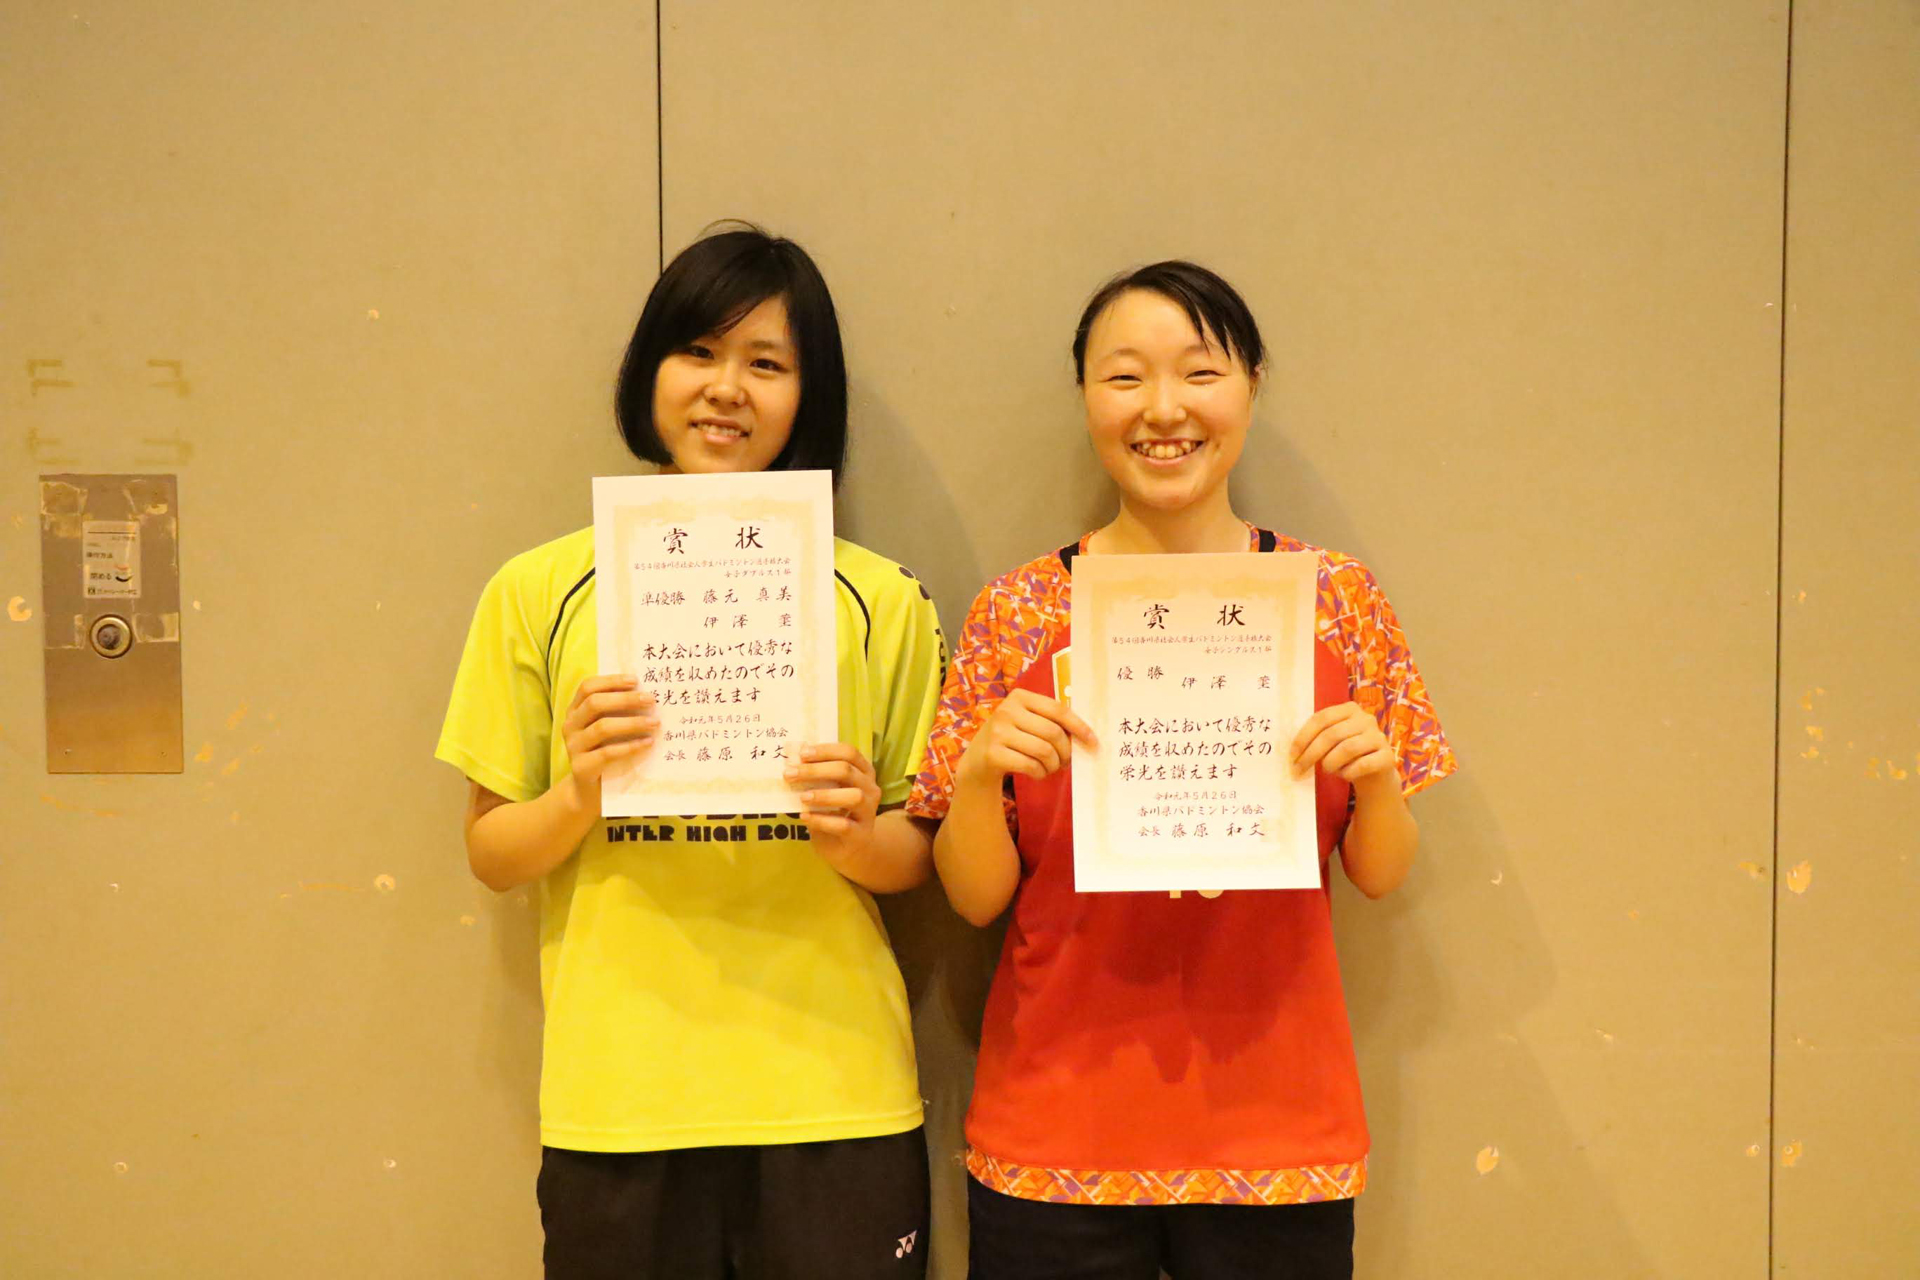 賞 状
第54回香川県社会人学生バドミントン選手権大会
女子ダブルス1部
準優勝 藤元 真美
伊澤 
本大会において優秀な
成績を収めたのでその
栄光を讃えます
令和元年5月26日
香川県バドミントン協会
会長 藤原 和文
INTER HIGH 2018
賞 状
第54回香川県社会人学生バドミントン選手権大会
女子シングルス1部
優勝 伊澤
本大会において優秀な
成績を収めたのでその
栄光を讃えます
令和元年5月26日
香川県バドミントン協会
会長 藤原 和文
操作方法
閉める